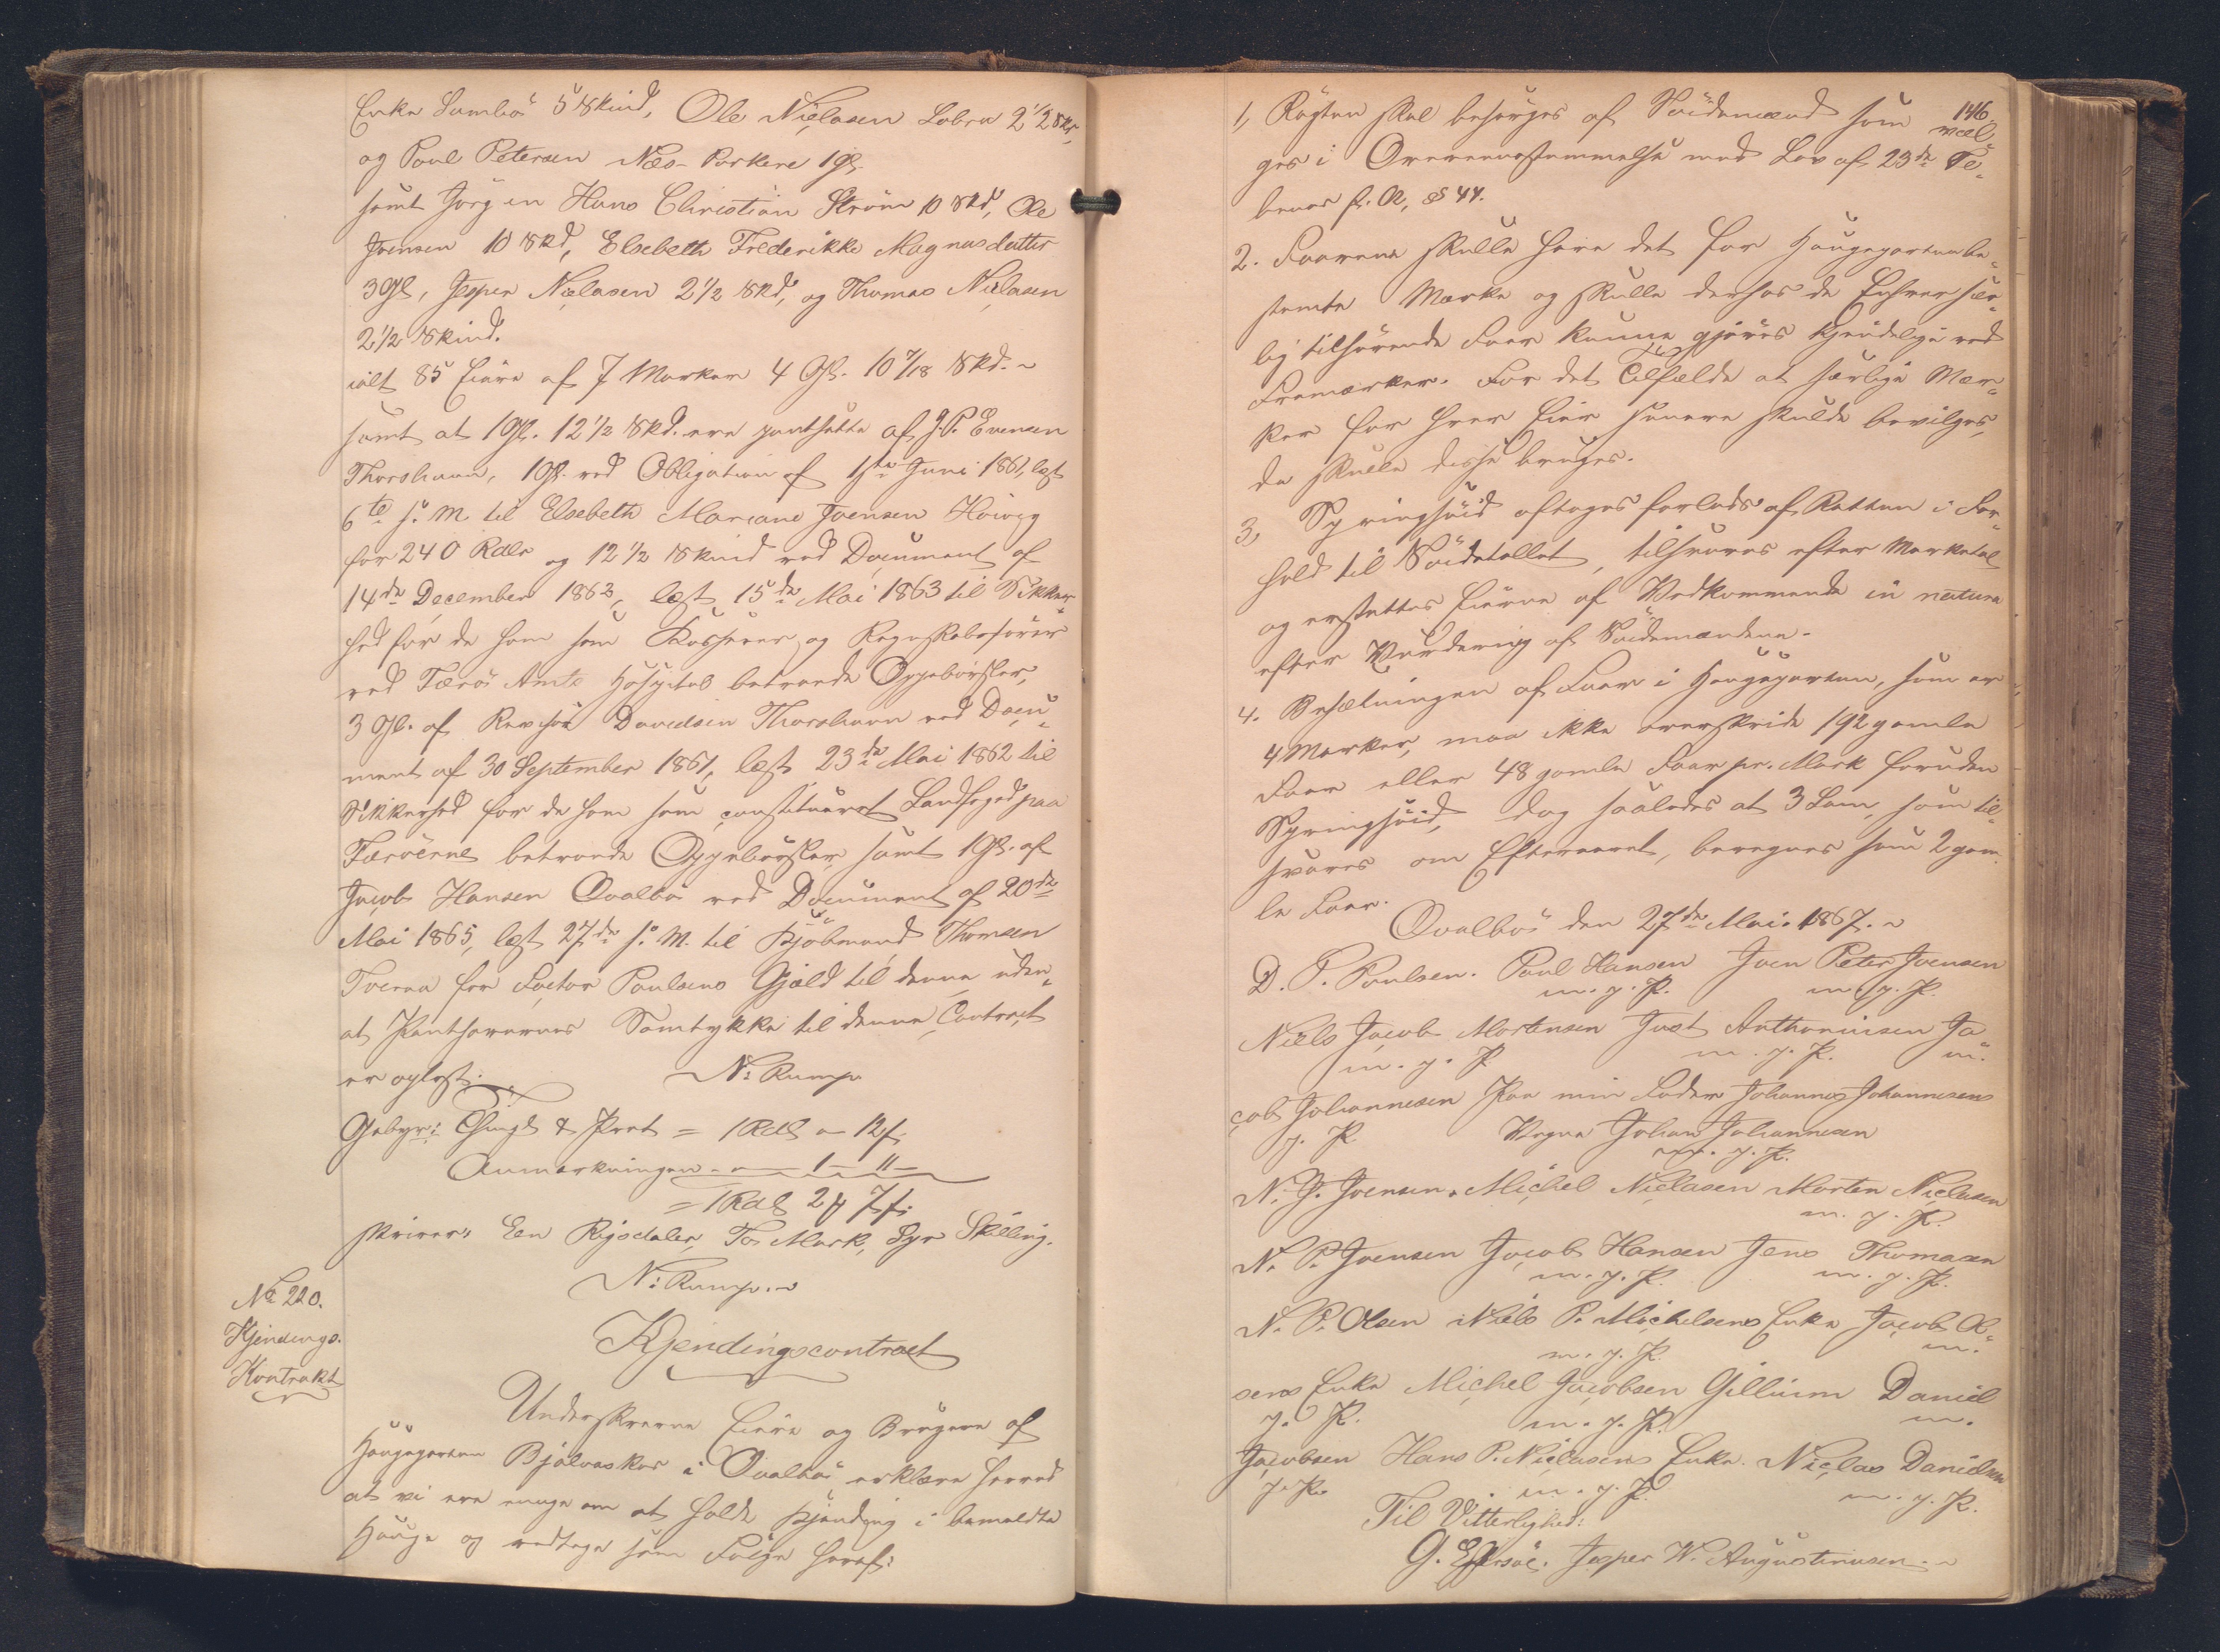 Enke Sumbö 5 Skind, Ole Nielasen Lobra 2 1/2 Skd,
og Poul Petersen Næs Porkere 1 Gl.
samt Jørgen Hans Christian Ström 10 Skd, Ole
Joensen 10 Skd, Elsebeth Frederikke Magnusdatter
3 Gl, Jesper Nielasen 2 1/2 Skd, og Thomas Nielasen
2 1/2 Skind.
ialt 85 Eiere af 7 Marker 4 Gl. 10 7/18 Skd. ~
samt at 1 Gl. 12 1/2 Skd. ere pantsatte af J. P. Evensen
Thorshavn, 1 Gl. ved Obligation af 1ste Juni 1861, læst
6te s. M. til Elsebeth Mariane Joensen Hoivig
for 240 Rdlr og 12 1/2 Skind ved Document af
14de December 1862, læst 15de Mai 1863 til Sikker-
hed for de ham som Kasserer og Regnskabsfører
ved Færö Amts Hospital betroede Oppebørsler,
3 Gl. af Revisor Davidsen Thorshavn ved Docu-
ment af 30 September 1861, læst 23de Mai 1862 til
Sikkerhed for de ham som constitueret Landfoged paa
Færöerne betroede Oppebørsler, samt 1 Gl. af
Jacob Hansen Qvalbö ved Document af 20de
Mai 1865, læst 27de s. M. til Kjøbmand Thomsen
Tveraa for Factor Poulsens Gjæld til denne, uden
at Panthavernes Samtykke til denne Contract
er oplyst. N: Rump
Gebyr: Thingl & Prot = 1 Rdl - 12 s.
Anmærkningen - 1 - 11 -
= 1 Rdl 2 # 7 s.
skriver: Een Rigsdaler, To Mark, Syv Skilling.
N: Rump. ~
No 220.
Kjendings-
Kontrakt
Kjendingscontract
Underskrevne Eiere og Brugere af
Haugeparten Bjålvaskor i Qvalbö erklære herved
at vi ere enige om at holde Kjending i bemeldte
Hauge og vedtage som Følge heraf:
146.
1, Røgten skal besørges af Soidemænd som væl-
ges i Overeensstemmelse med Lov af 23de Fe-
bruar f. A, § 44.
2. Faarene skulle have det for Haugeparten be-
stemte Mærke og skulle derhos de Enhver sær-
lig tilhørende Faar kunne gjøres kjendelige ved
Framærker. For det Tilfælde at særlige Mær-
ker for hver Eier senere skulde bevilges,
da skulle disse bruges.
3, Springsoid aftages forlods af Retten i For-
hold til Soidetallet, tilsvares efter Marketal
og erstattes Eierne af Vedkommende in natura
efter Vurdering af Soidemændene.
4. Besætningen af Faar i Haugeparten, som er
4 Marker, maa ikke overskride 192 gamle
Faar eller 48 gamle Faar pr. Mark foruden
Springsoid, dog saaledes at 3 Lam, som til-
svares om Efteraaret, beregnes som 2 gam-
le Faar.
Qvalbö den 27de Mai 1867. ~
D. P. Poulsen. Poul Hansen Joen Peter Joensen
m. p. P. m. p. P.
Niels Jacob Mortensen Just Anthoniusen Ja-
m. p. P. m. p. P. m.
cob Johannesen Paa min Fader Johannes Johannesens
p. P. Vegne Johan Johannesen
m. p. P.
N. J. Joensen. Michel Nielasen Morten Nielasen
m. p. P.
N. P. Joensen Jacob Hansen Jens Thomasen
m. p. P. m. p. P.
N. P. Olsen Niels P. Michelsens Enke Jacob Ol-
m. p. P. m.
sens Enke Michel Jacobsen Gillium Daniel
p. P. m. p. P. m.
Jacobsen Hans P. Nielasens Enke. Nielas Danielsen
p. P. m. p. P. m. p. P.
Til Vitterlighed:
G. Effersöe. Jesper W. Augustinusen. ~